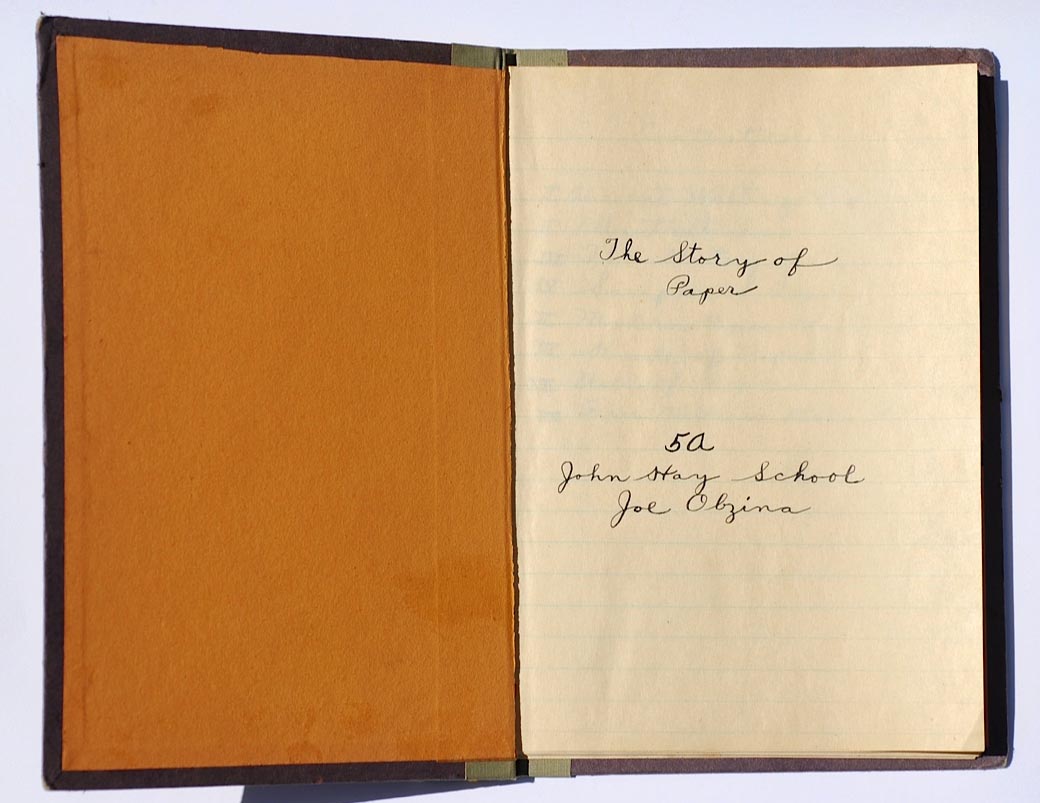 The Story of
Paper
5A
John Hay School
Joe Obzina